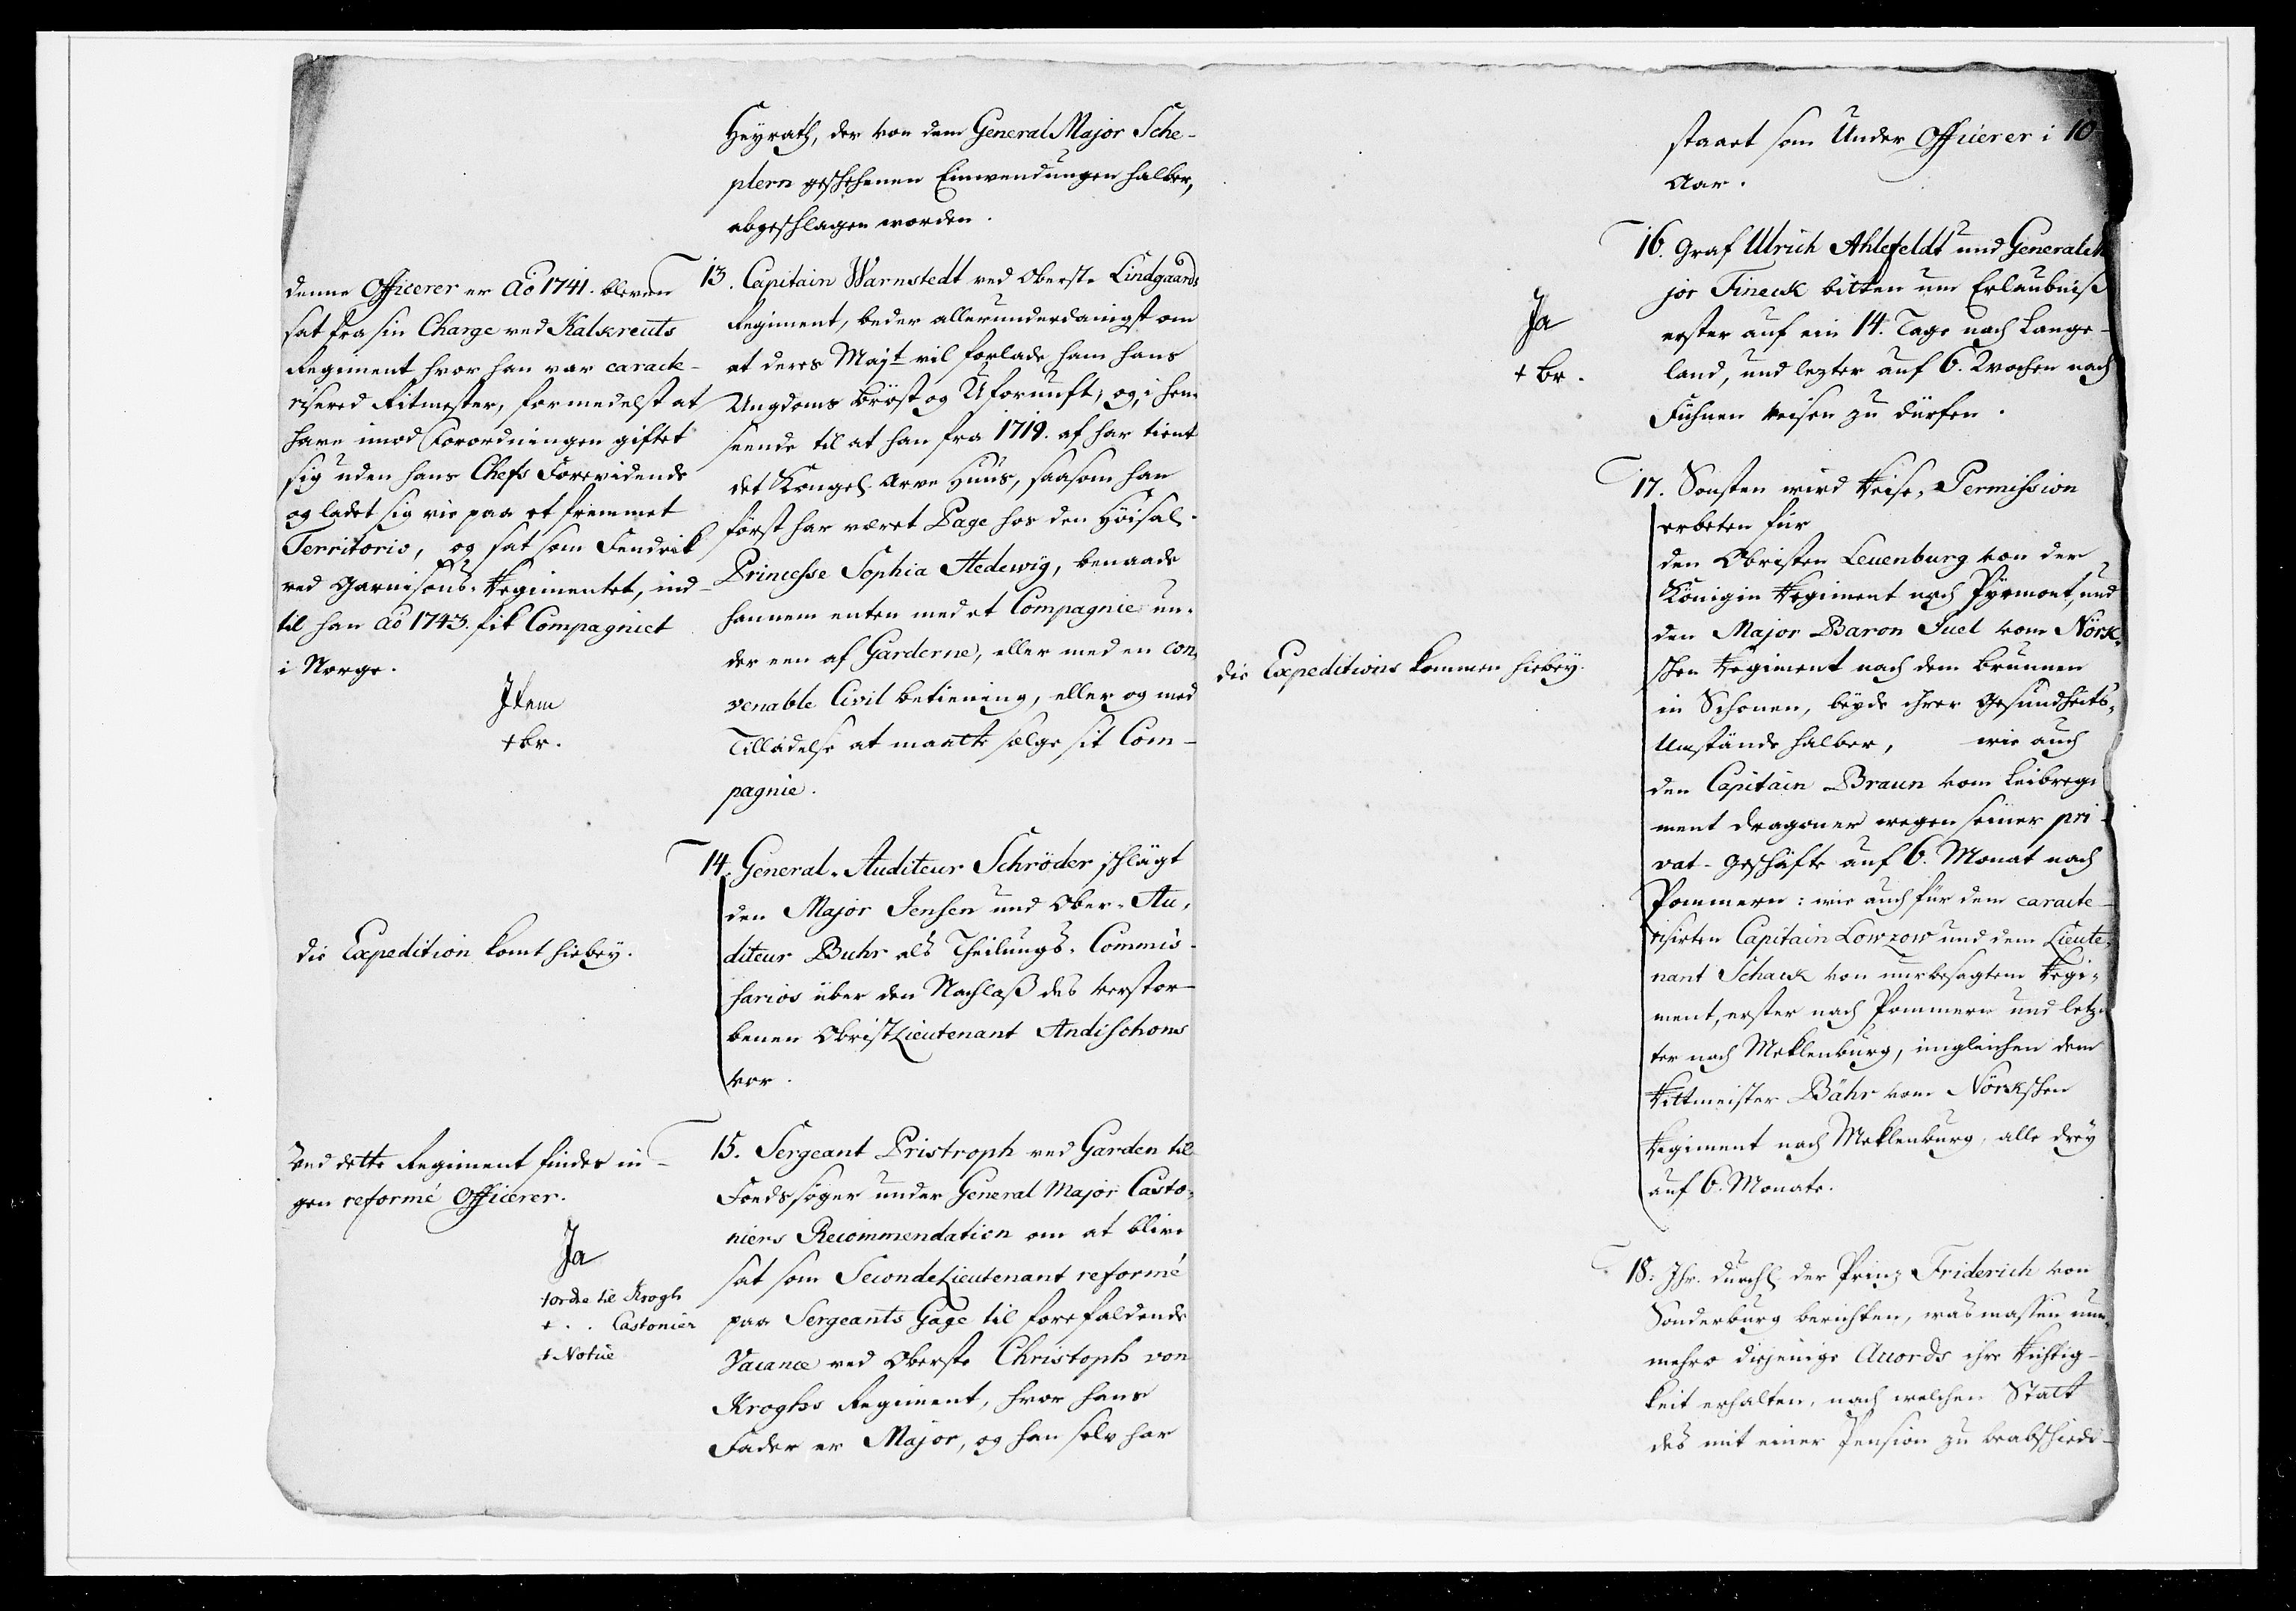 Heyrath, der von dem General Major Sche-
plern geschehenen Einwendungen halber,
abgeschlagen worden.
denne Officerer er Aō 1741. bleven
sat fra sin Charge ved Kalkreuts
Regiment hvor han var carack-
risered Ritmester, formedelst at
have imod Forordningen giftet
sig uden hans Chefs Forevidende
og ladet sig vie paa et fremmet
Territorio, og sat som Fendrik
ved Garnisons-Regimentet, ind-
til han Aō 1743. fik Compagniet
i Norge.
Idem
+ br.
13. Capitain Warnstedt ved Oberst. Lindgaards
Regiment, beder allerunderdanigst om
at deres Majt vil forlade ham hans
Ungdoms bröst og Ufornuft, og, i hen-
seende til at han fra 1719. af har tient
det Kongel. Arve Huus, saasom han
först har været Page hos den Höisal.
Princesse Sophia Hedewig, benaade
hannem enten med et Compagnie un-
der een af Garderne, eller med en con-
venable Civil betiening, eller og med
Tilladelse at maatte sælge sit Com-
pagnie.
die Expedition komt hiebey.
14. General-Auditeur Schröder schlägt
den Major Jensen und Ober-Au-
diteur Buhr als Theilungs-Commis-
sarios über den Nachlaß des verstor-
benen ObristLieutenant Andischons
vor.
Ved dette Regiment findes in-
gen reformé Officerer.
Ja
+ ordre til Krogh
+ . . Castonier
+ Notice
15. Sergeant Pristroph ved Garden til
Foeds söger under General Major Casto-
niers Recommendation om at blive
sat som SecondeLieutenant reformé
paa Sergeants Gage til forefaldende
Vacance ved Oberste Christoph von
Kroghs Regiment, hvor hans
Fader er Major, og han selv har
staaet som Under Officerer i 10
Aar.
Ja
+ br.
16. Graf Ulrich Ahlefeldt und General M
jor Fineck bitten um Erlaubniß
erster auf ein 14. Tage nach Lange-
land, und lezter auf 6. Wochen nach
Fühnen reisen zu dürfen.
die Expeditions kommen hiebey.
17. Sonsten wird Reise-Permission
erbeten für
den Obristen Leuenburg von der
Königin Regiment nach Pyrmont, und
den Major Baron Juel vom Nörk-
schen Regiment nach dem Brunnen
in Schonen, beyde ihrer Gesundheits-
Umstände halber, wie auch
den Capitain Braun vom Leibregi-
ment Dragoner wegen seiner pri-
vat-Geschäfte auf 6. Monat nach
Pommern: wie auch für dem caracte-
risirten Capitain Lowzow und dem Lieute-
nant Schack von nurbesagtem Regi-
ment, erster nach Pommern und letz-
ter nach Meklenburg, imgleichen dem
Rittmeister Bähr vom Nörkschen
Regiment nach Meklenburg, alle drey
auf 6. Monate.
18. Ihr. durchl. der Prinz Friderich von
Sonderburg berichten, was massen nun-
mehro diejenige Accords ihre Richtig-
keit erhalten, nach welchen Statt
des mit einer Pension zu verabschiede-